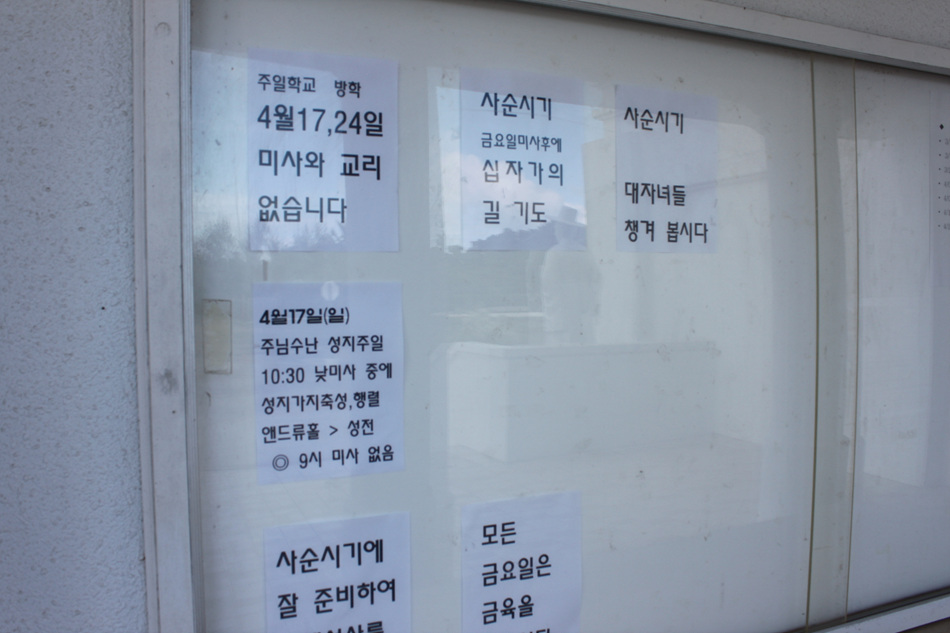 주일학교 방학
4월17,24일
미사와 교리
없습니다
사순시기
금요일미사후에
십자가의
길 기도
사순시기
대자녀들
챙겨 봅시다
4월17일(일)
주님수난 성지주일
10:30 낮미사 중에
성지가지축성,행렬
앤드류홀 > 성전
◎ 9시 미사 없음
사순시기에
잘 준비하여
모든
금요일은
금육을